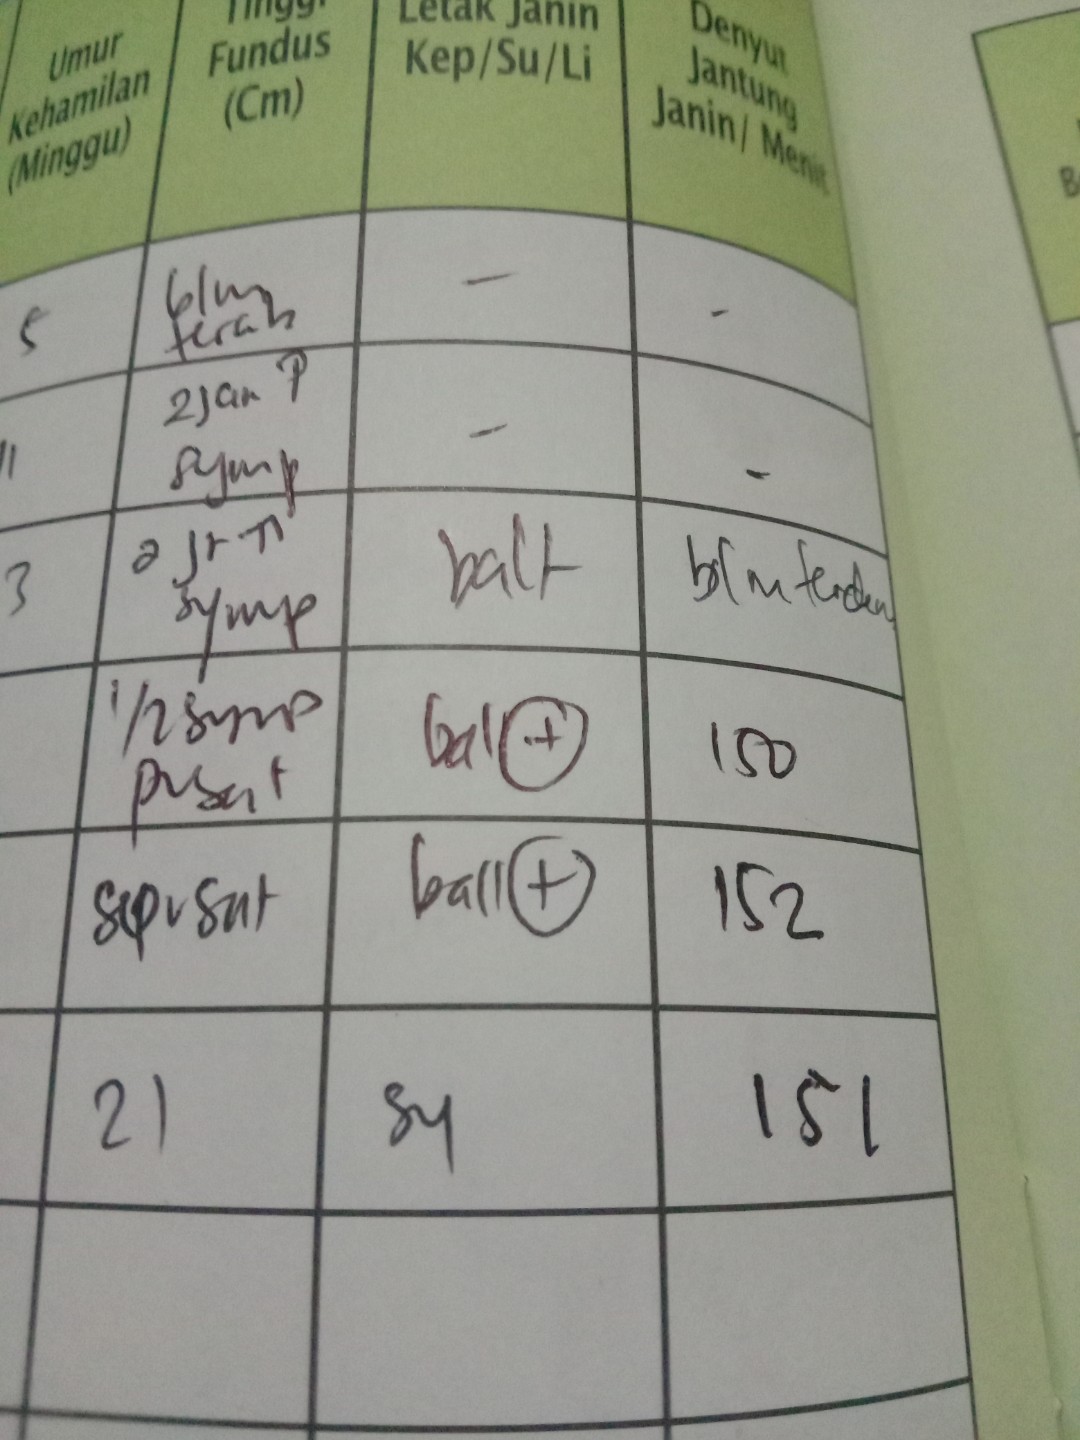 Umur
Kehamilan
(Minggu)
Tinggi
Fundus
(Cm)
Letak Janin
Kep/Su/Li
Denyut
Jantung
Janin/ Menit
5
blm
terab
-
-
11
2 jar ↑
symp
-
-
3
2 jr ↑
symp
ball
blm terden
1/2 symp
pusat
ball +
150
sepusat
ball +
152
21
su
151